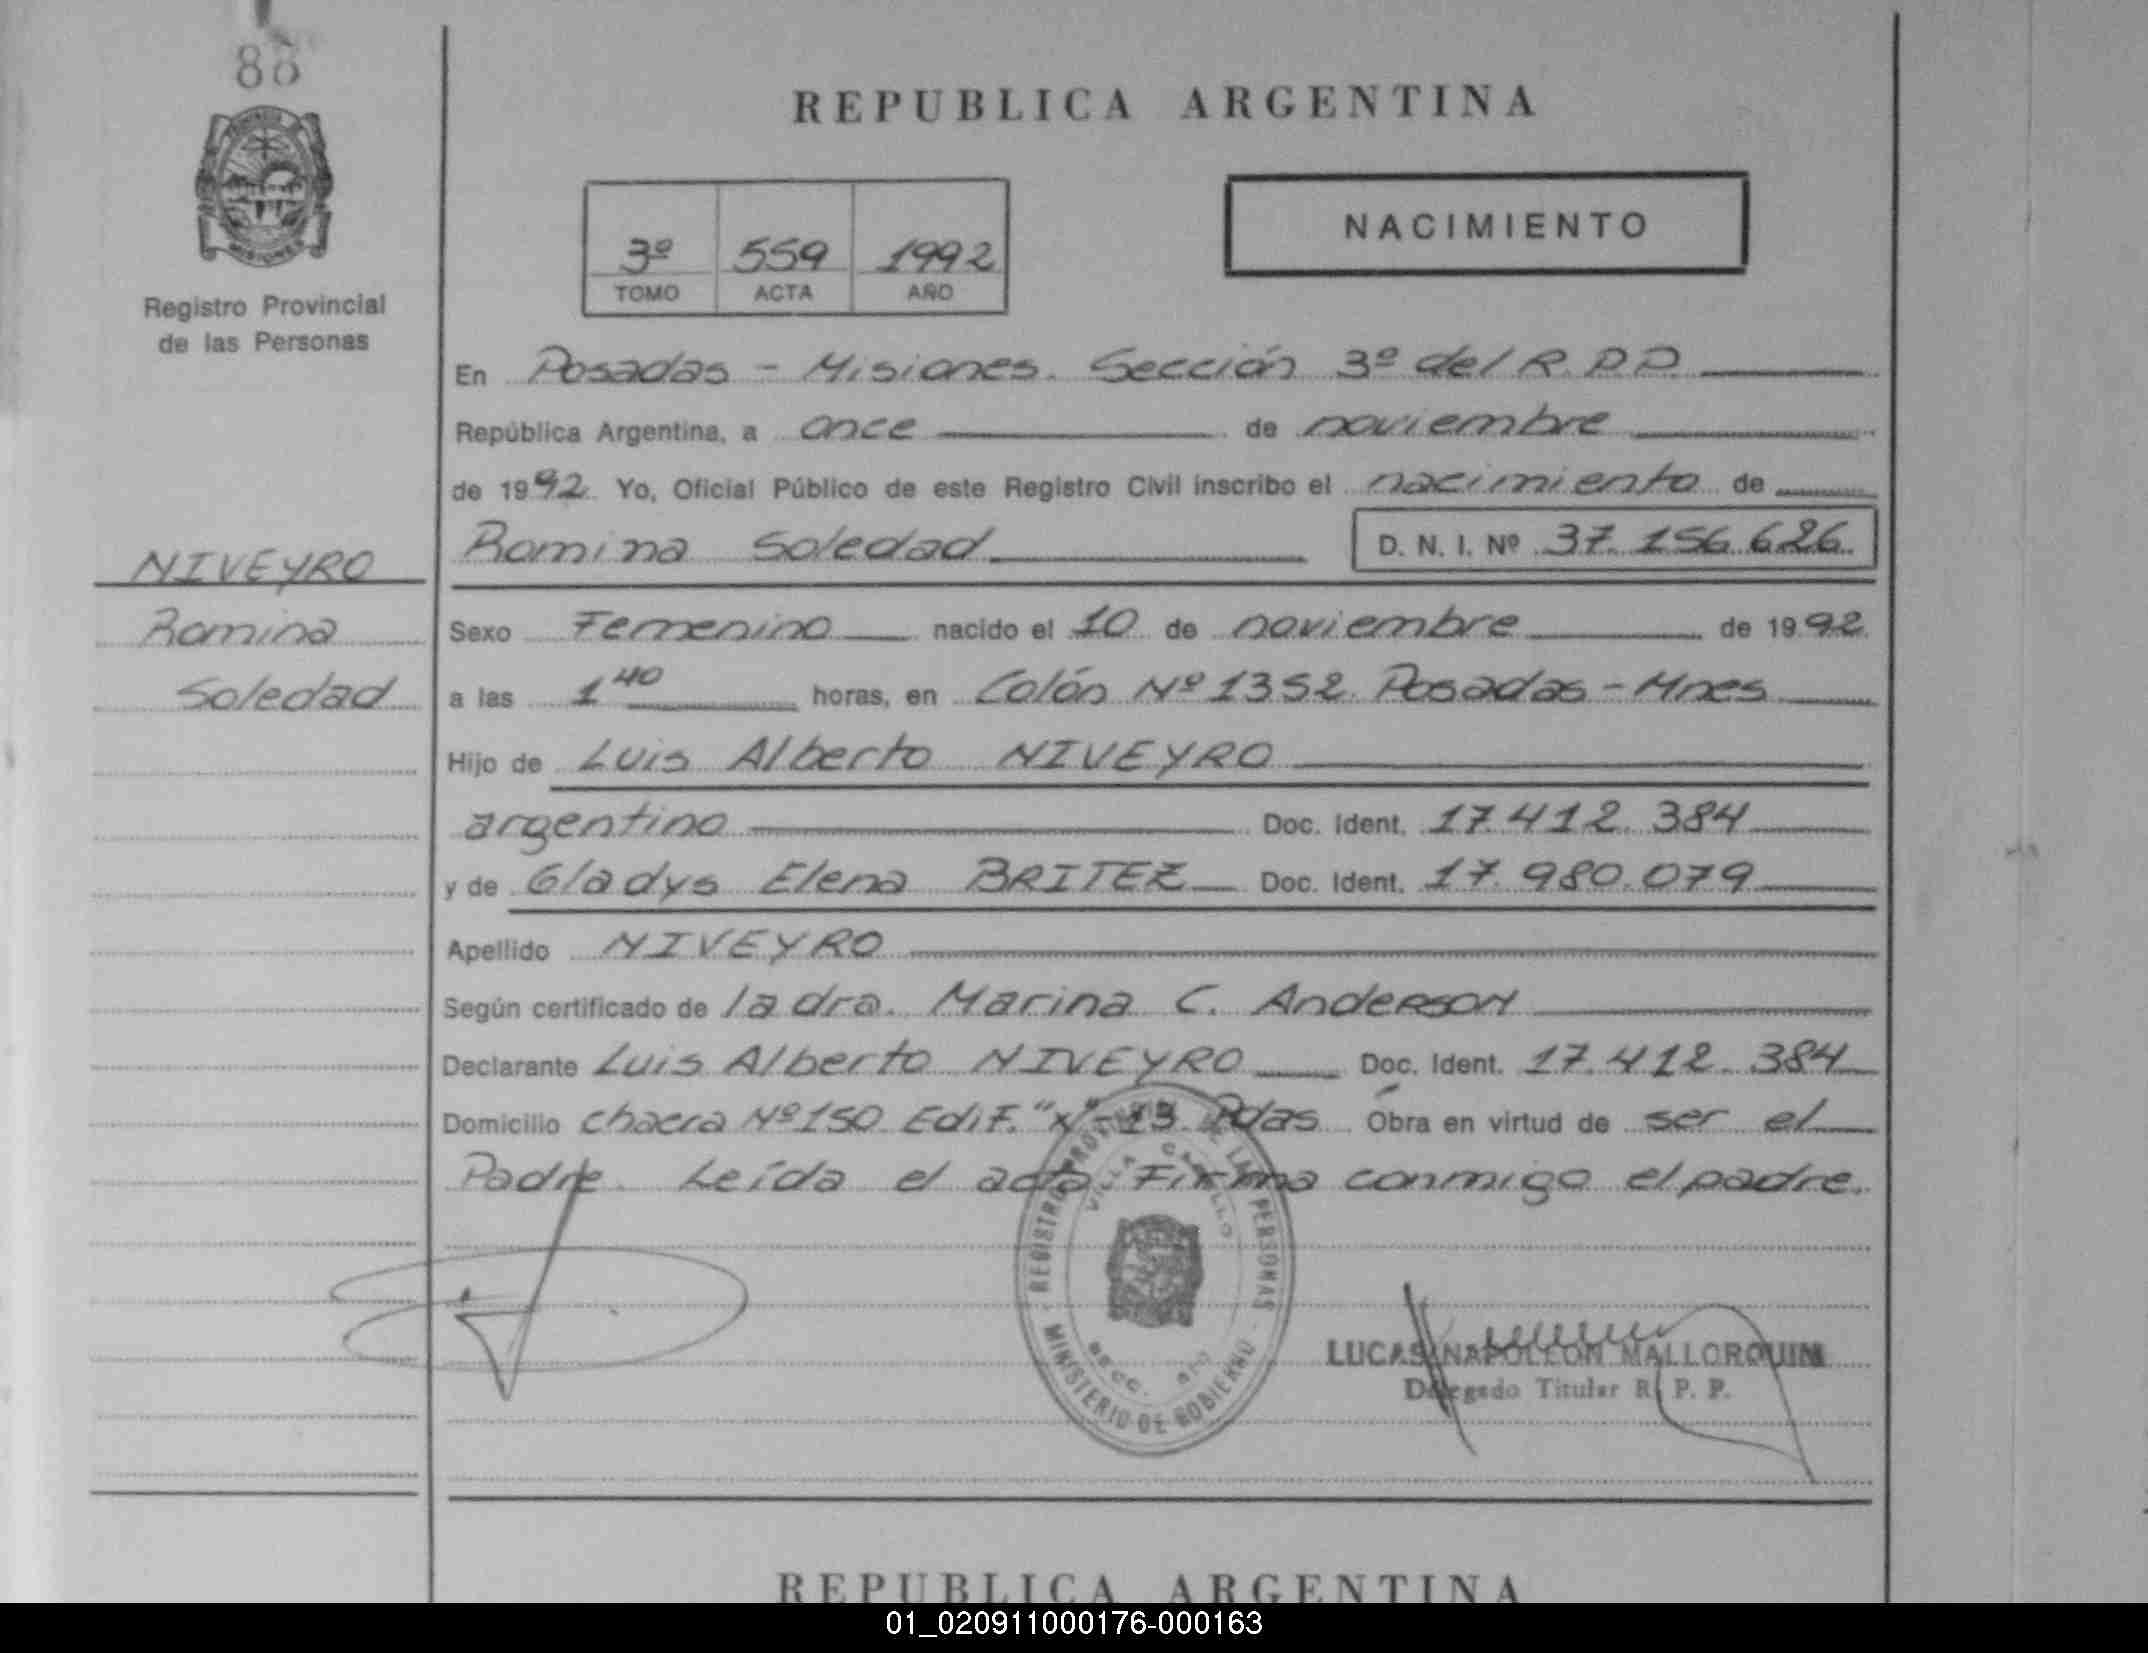 88
REPUBLICA ARGENTINA
MISIONES
Registro Provincial
de las Personas
3º 559 1992
TOMO ACTA AÑO
NACIMIENTO
En Posadas - Misiones. Sección 3º del R.P.P.
República Argentina, a once de noviembre
de 1992. Yo, Oficial Público de este Registro Civil inscribo el nacimiento de
Romina Soledad D. N. I. Nº 37.156.626
NIVEYRO
Romina
Soledad
Sexo Femenino nacido el 10 de noviembre de 1992
a las 1 40 horas, en Colón Nº 1352. Posadas - Mnes
Hijo de Luis Alberto NIVEYRO
argentino Doc. Ident. 17.412.384
y de Gladys Elena BRITEZ Doc. Ident. 17.980.079
Apellido NIVEYRO
Según certificado de la dra. Marina C. Anderson
Declarante Luis Alberto NIVEYRO Doc. Ident. 17.412.384
Domicilio chacra Nº 150 Edif. "x" - 13 Pdas Obra en virtud de ser el
Padre. Leída el acta Firma conmigo el padre.
REGISTRO PROVINCIAL DE LAS PERSONAS
VILLA CABELLO
MINISTERIO DE GOBIERNO
LUCAS NAPOLEON MALLORQUIN
Delegado Titular R. P. P.
REPUBLICA ARGENTINA
01_020911000176-000163